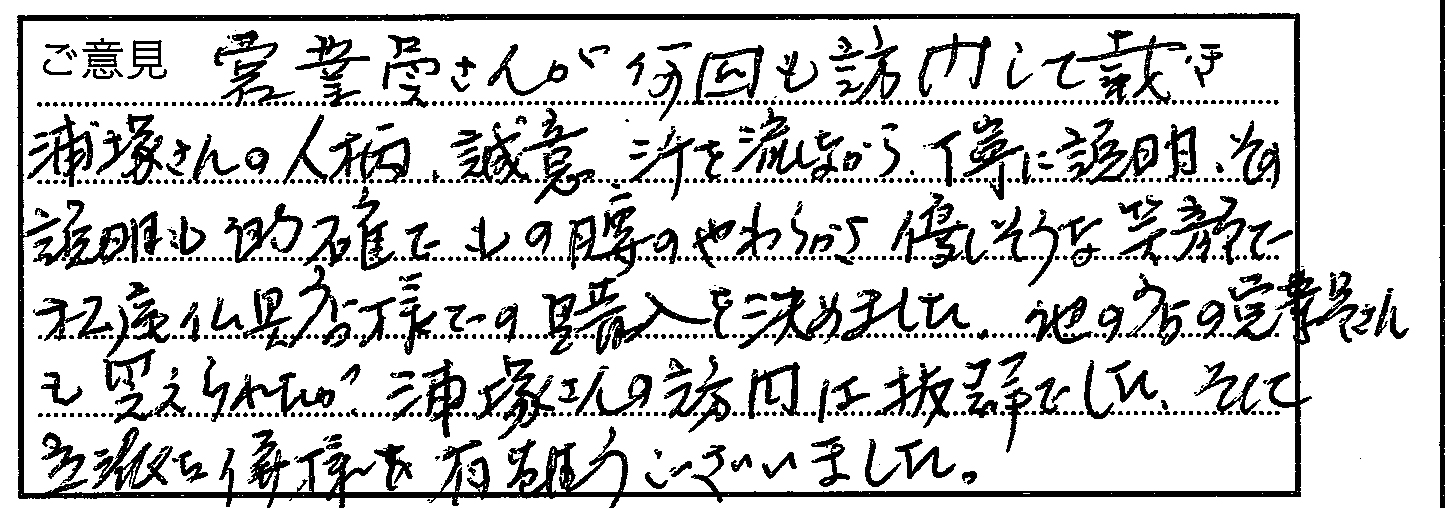 ご意見 営業員さんが何回も訪問して戴き
浦塚さんの人柄、誠意、汗を流しながら、丁寧に説明、その
説明も的確でもの腰のやわらかさ優しそうな笑顔で
仏具店様での購入を決めました。他の店の営業員さん
も見えられたが、浦塚さんの訪問は抜群でした。そして
立派な仏様を有難うございました。